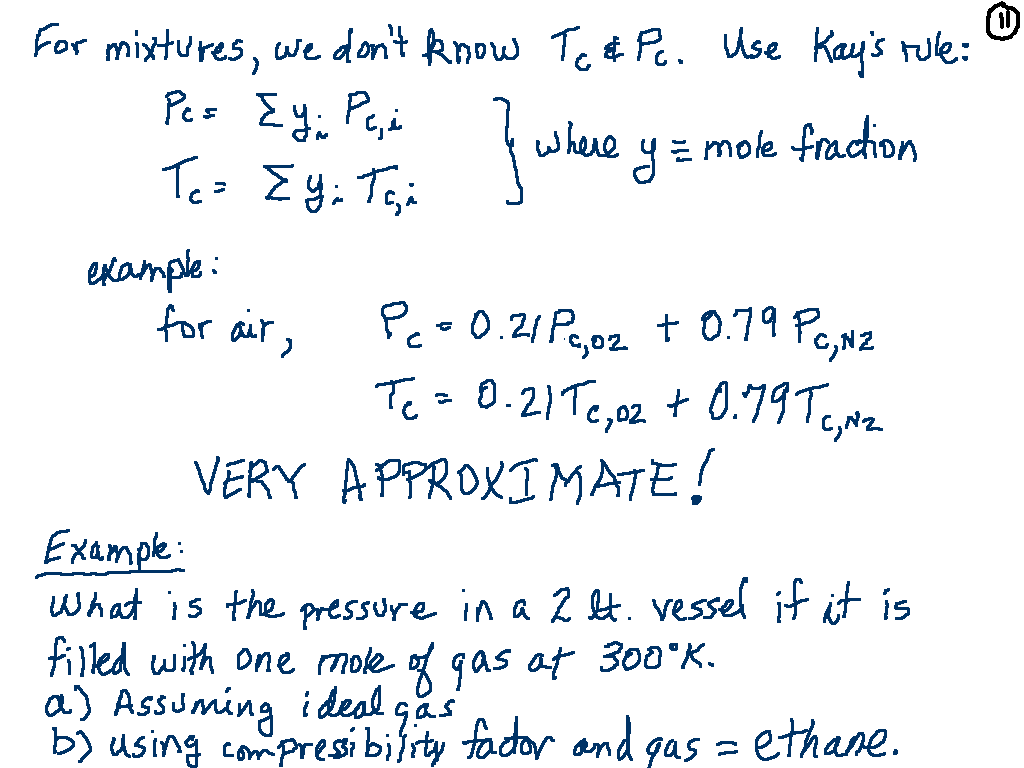 ⑪
For mixtures, we don't know Tc & Pc. Use Kay's rule:
Pc = Σ yi Pc,i
Tc = Σ yi Tc,i
} where y ≡ mole fraction
example:
for air, Pc = 0.21 Pc,O2 + 0.79 Pc,N2
Tc = 0.21 Tc,O2 + 0.79 Tc,N2
VERY APPROXIMATE!
Example:
What is the pressure in a 2 lt. vessel if it is
filled with one mole of gas at 300°K.
a) Assuming ideal gas
b) using compressibility factor and gas = ethane.